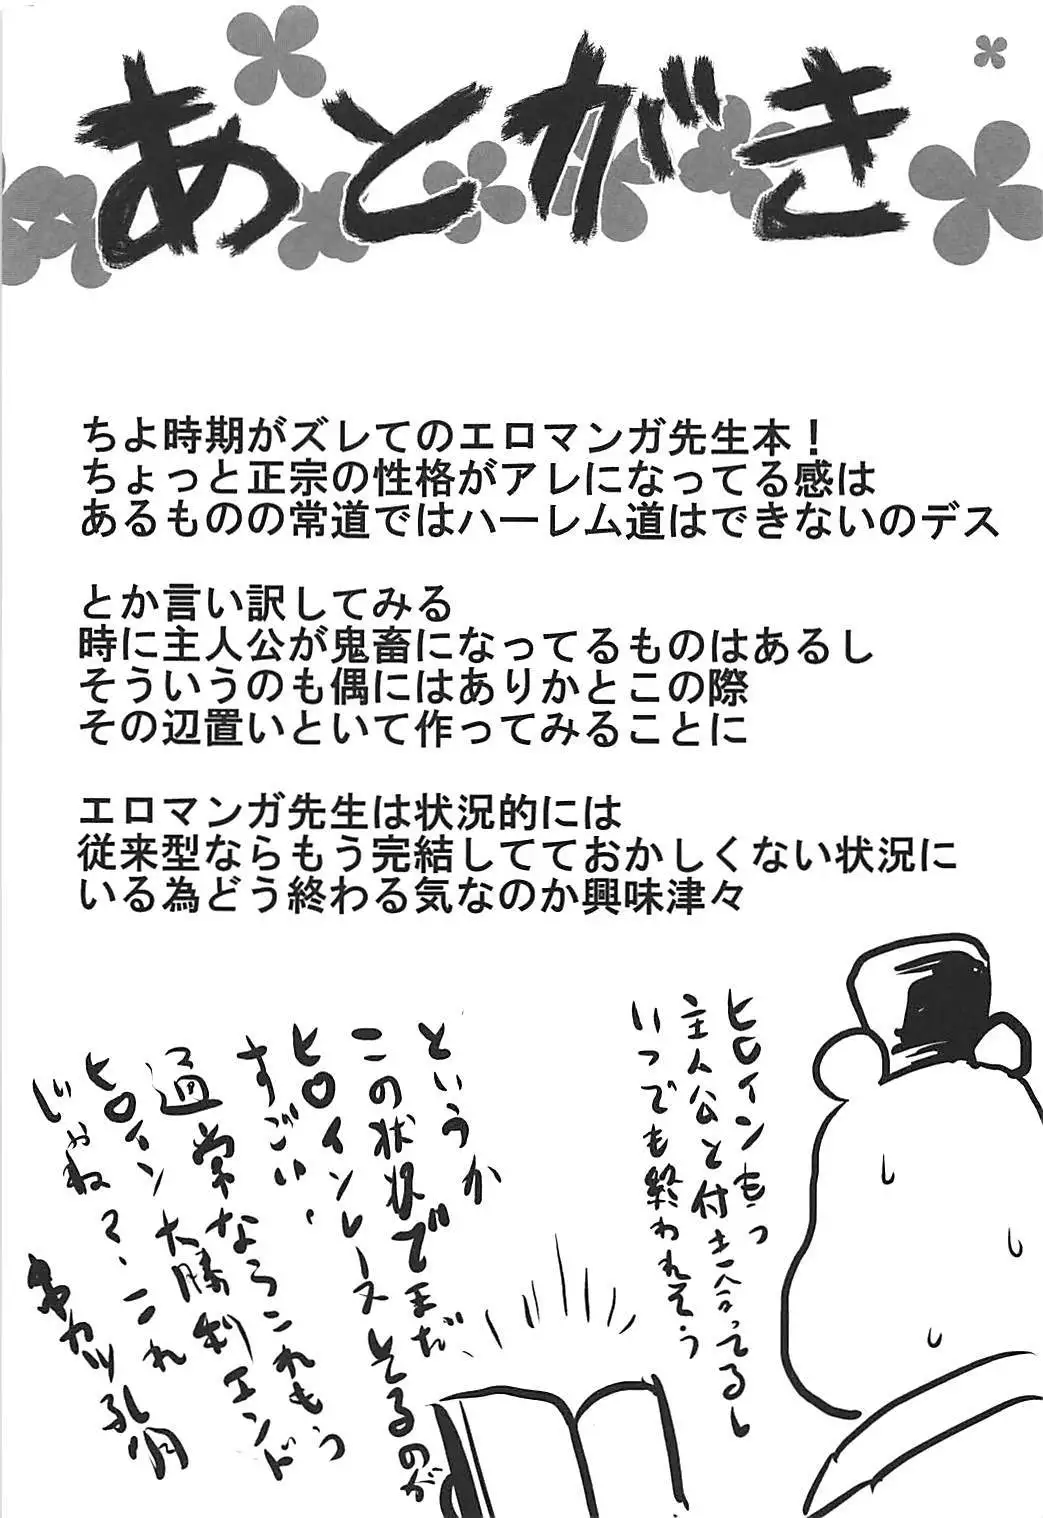 あとがき
ちよ時期がズレてのエロマンガ先生本！
ちょっと正宗の性格がアレになってる感は
あるものの常道ではハーレム道はできないのデス
とか言い訳してみる
時に主人公が鬼畜になってるものはあるし
そういうのも偶にはありかとこの際
その辺置いといて作ってみることに
エロマンガ先生は状況的には
従来型ならもう完結してておかしくない状況に
いる為どう終わる気なのか興味津々
ヒロインもっ
主人公と付き合ってるし
いつでも終われそう
というか
この状況でまだ
ヒロインレースしてるのが
すごい、
通常ならこれもう
ヒロイン大勝利エンド
じゃね？、これ